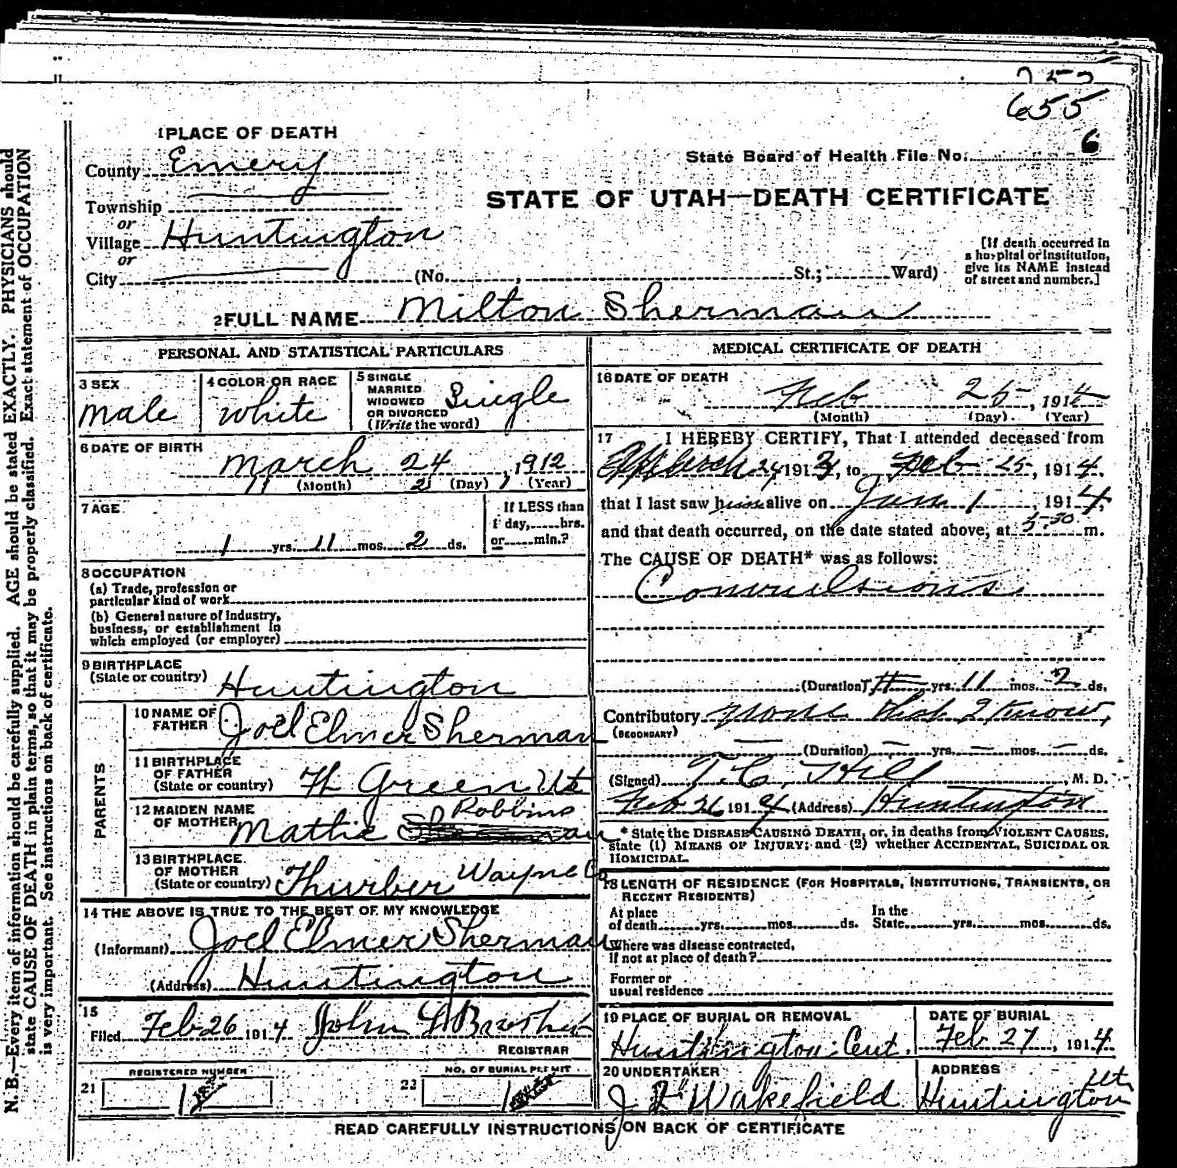 655
6
1 PLACE OF DEATH
County Emery
State Board of Health File No.
STATE OF UTAH—DEATH CERTIFICATE
Township
or
Village Huntington
or
City (No. , St.; Ward)
[If death occurred in
a hospital or institution,
give its NAME instead
of street and number.]
2 FULL NAME Milton Sherman
PERSONAL AND STATISTICAL PARTICULARS
3 SEX
male
4 COLOR OR RACE
white
5 SINGLE
MARRIED
WIDOWED
OR DIVORCED
(Write the word)
Single
6 DATE OF BIRTH
March 24, 1912
(Month) (Day) (Year)
7 AGE
1 yrs. 11 mos. 2 ds.
If LESS than
1 day, hrs.
or min.?
8 OCCUPATION
(a) Trade, profession or
particular kind of work
(b) General nature of industry,
business, or establishment in
which employed (or employer)
9 BIRTHPLACE
(State or country)
Huntington
PARENTS
10 NAME OF
FATHER
Joel Elmer Sherman
11 BIRTHPLACE
OF FATHER
(State or country)
Ft Green Ut
12 MAIDEN NAME
OF MOTHER
Mathie Robbins
13 BIRTHPLACE
OF MOTHER
(State or country)
Thurber Wayne Co
14 THE ABOVE IS TRUE TO THE BEST OF MY KNOWLEDGE
(Informant) Joel Elmer Sherman
(Address) Huntington
15
Filed Feb 26 1914 John
REGISTRAR
REGISTERED NUMBER
21
NO. OF BURIAL PERMIT
22
MEDICAL CERTIFICATE OF DEATH
16 DATE OF DEATH
Feb 25, 1914
(Month) (Day) (Year)
17 I HEREBY CERTIFY, That I attended deceased from
24 191 , to Feb 25, 1914,
that I last saw him alive on Jan 1, 1914,
and that death occurred, on the date stated above, at 5.30 m.
The CAUSE OF DEATH* was as follows:
Convulsions
(Duration) yrs. 11 mos. 2 ds.
Contributory none that I know,
(SECONDARY)
(Duration) — yrs. — mos. — ds.
(Signed) T. C. Hill, M. D.
Feb 26 1914 (Address) Huntington
* State the DISEASE CAUSING DEATH, or, in deaths from VIOLENT CAUSES,
state (1) MEANS OF INJURY; and (2) whether ACCIDENTAL, SUICIDAL OR
HOMICIDAL.
18 LENGTH OF RESIDENCE (FOR HOSPITALS, INSTITUTIONS, TRANSIENTS, OR
RECENT RESIDENTS)
At place
of death yrs. mos. ds.
In the
State yrs. mos. ds.
Where was disease contracted,
if not at place of death?
Former or
usual residence
19 PLACE OF BURIAL OR REMOVAL
Huntington
DATE OF BURIAL
Feb 27, 1914
20 UNDERTAKER
Wakefield
ADDRESS
Huntington Utn
READ CAREFULLY INSTRUCTIONS ON BACK OF CERTIFICATE
N. B.—Every item of information should be carefully supplied. AGE should be stated EXACTLY. PHYSICIANS should
state CAUSE OF DEATH in plain terms, so that it may be properly classified. Exact statement of OCCUPATION
is very important. See instructions on back of certificate.